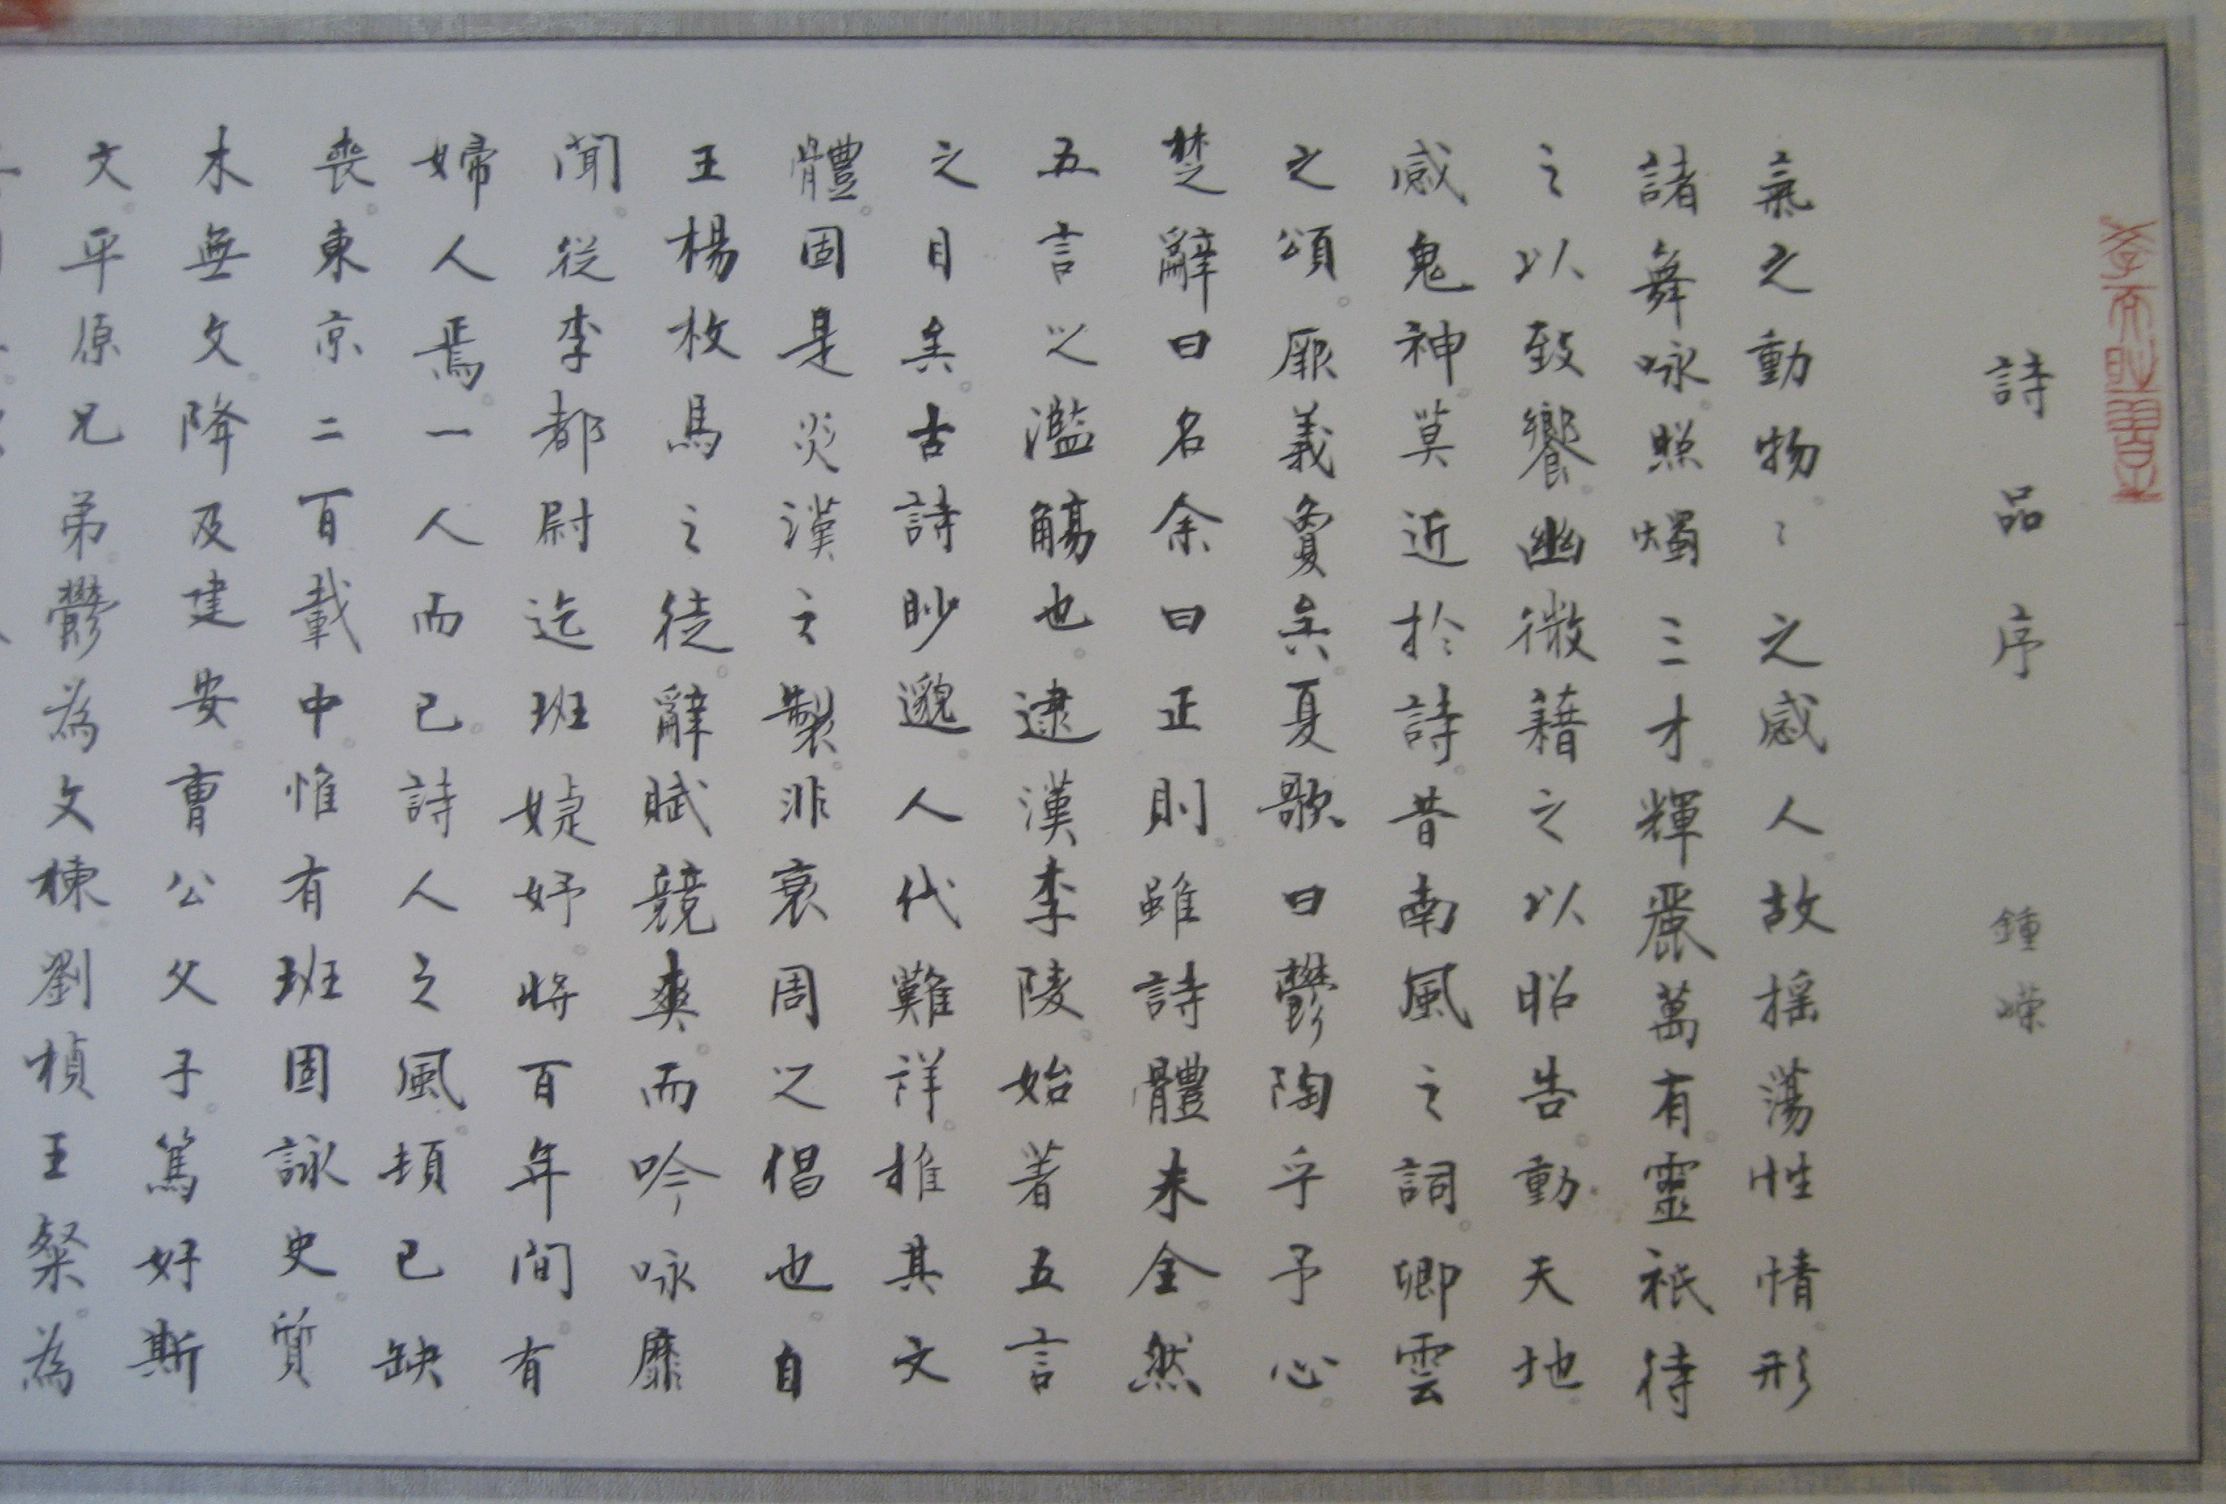 詩品序 鍾嶸
氣之動物〻之感人故搖蕩性情形
諸舞咏照燭三才輝麗萬有靈祇待
之以致饗幽微藉之以昭告動天地
感鬼神莫近於詩昔南風之詞卿雲
之頌厥義敻矣夏歌曰鬱陶乎予心
楚辭曰名余曰正則雖詩體未全然
五言之濫觴也逮漢李陵始著五言
之目矣古詩眇邈人代難祥推其文
體固是炎漢之製非衰周之倡也自
王楊枚馬之徒辭賦競爽而吟咏靡
聞從李都尉迄班婕妤將百年間有
婦人焉一人而已詩人之風頓已缺
喪東京二百載中惟有班固詠史質
木無文降及建安曹公父子篤好斯
文平原兄弟鬱為文棟劉楨王粲為